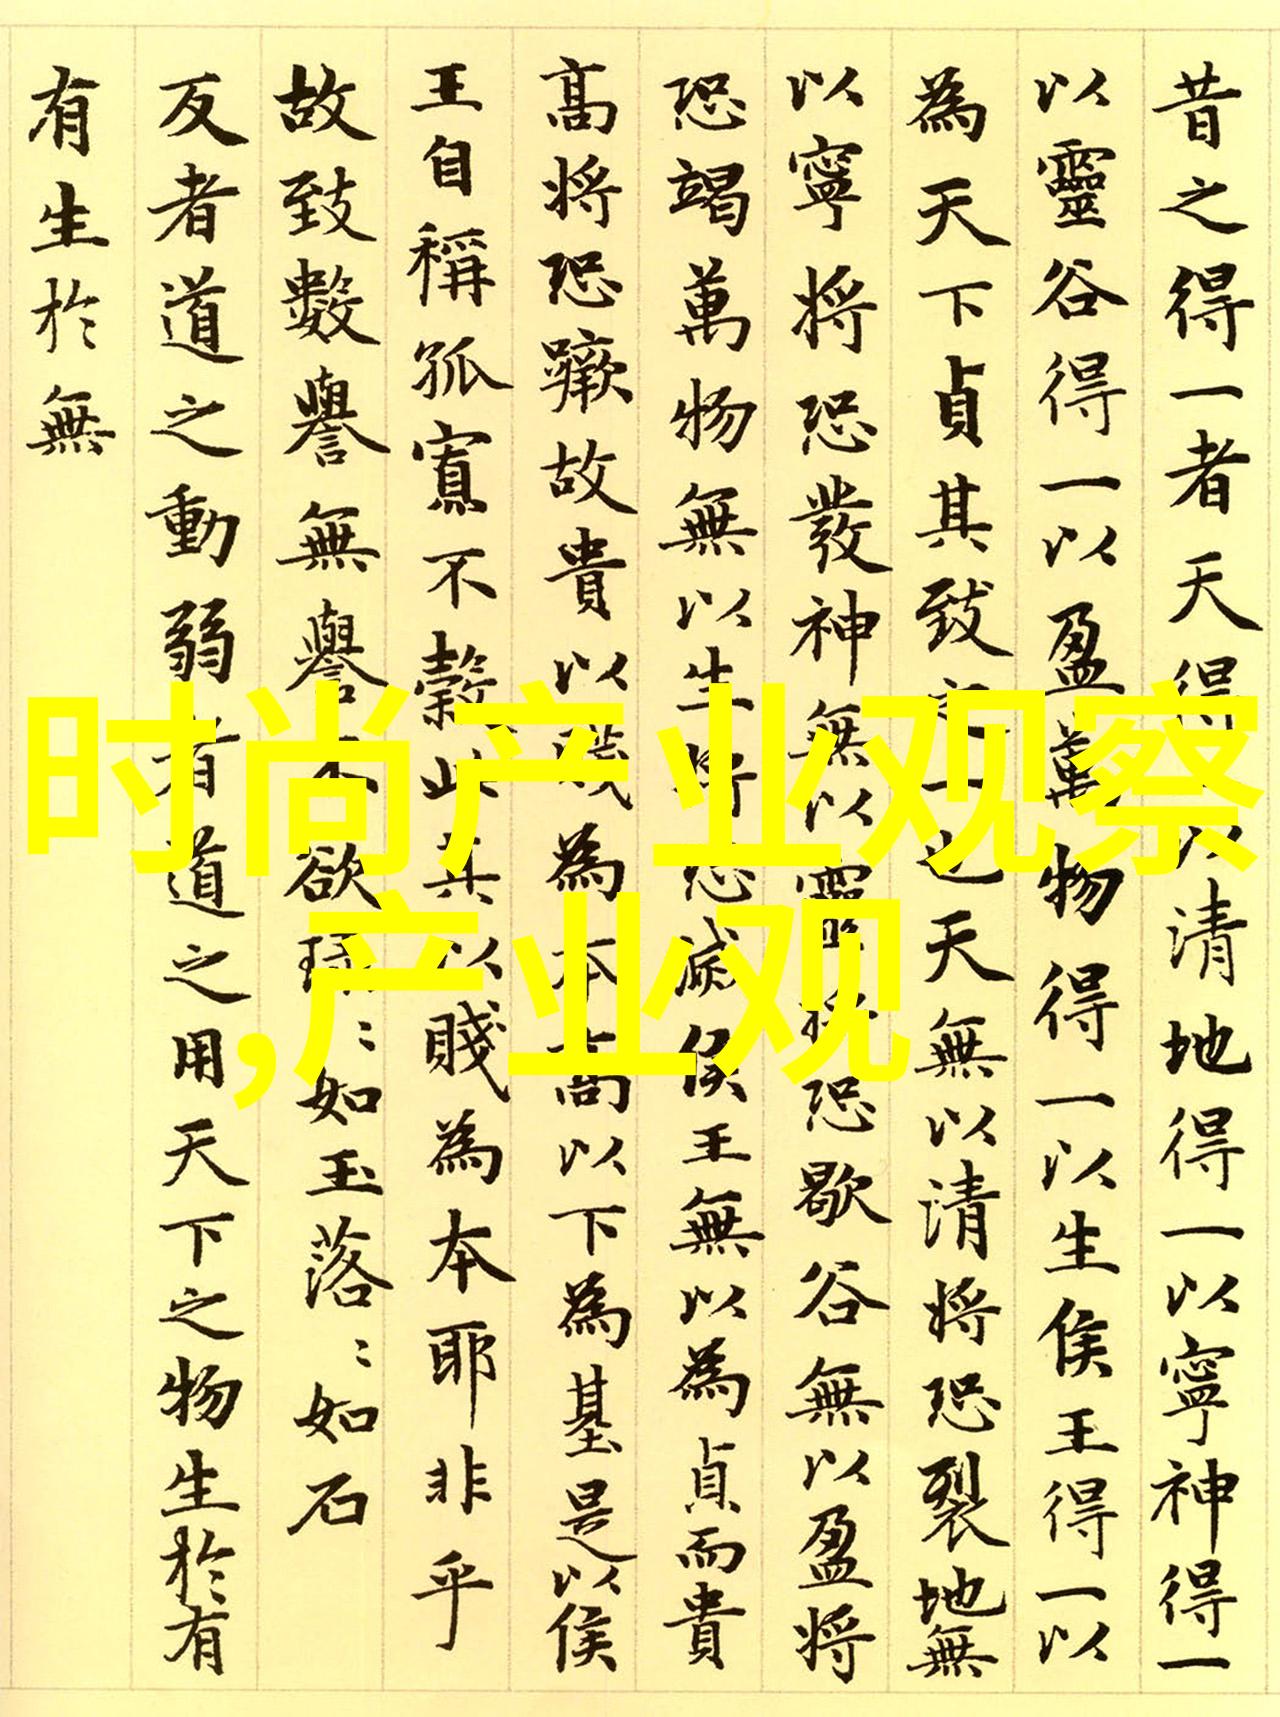 昔之得一者天得以清地得一以寧神得一
以靈谷得一以盈萬物得一以生侯王得一以
為天下貞其致之一也天無以清將恐裂地無
以寧將恐發神無以靈將恐歇谷無以盈將
恐竭萬物無以生將恐滅侯王無以為貞而貴
高將恐蹶故貴以賤為本高以下為基是以侯
王自稱孤寡不穀此其以賤為本耶非乎
故致數譽無譽不欲琭〻如玉落〻如石
反者道之動弱者道之用天下之物生於有
有生於無
时尚产业观察
,产业观